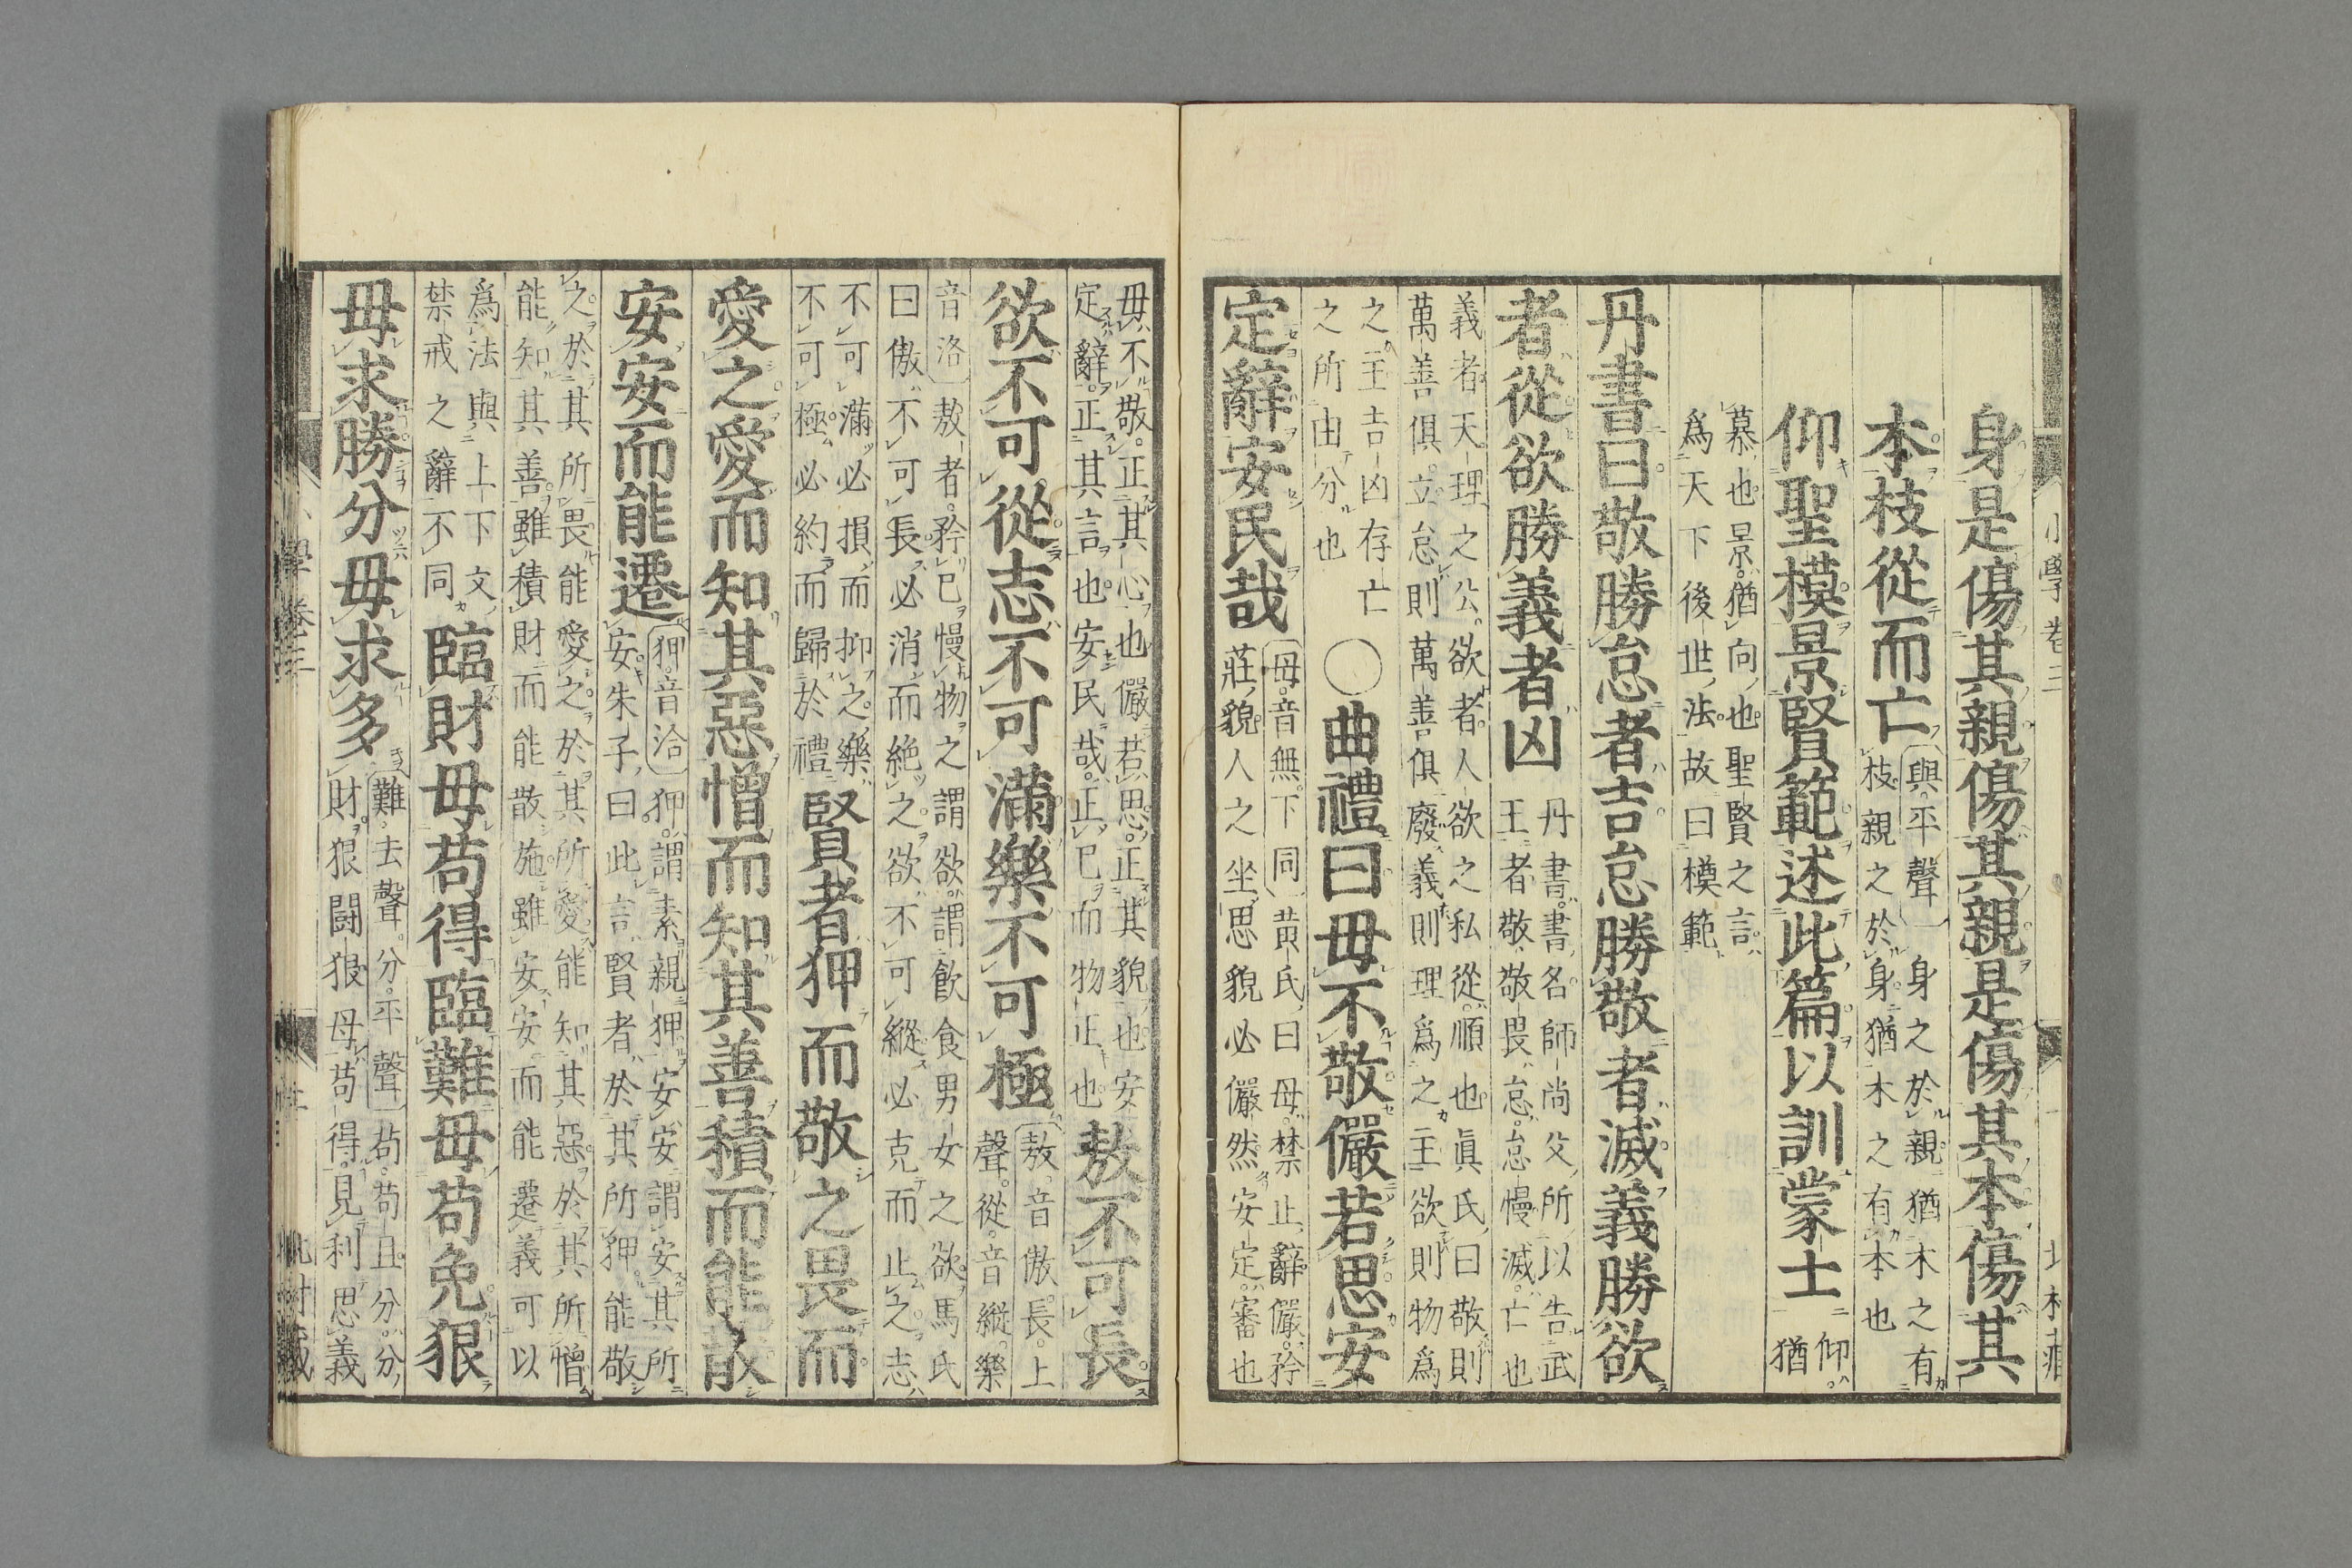 小學卷三
身是傷其親傷其親是傷其本傷其
本枝從而亡
〔與平聲〕身之於親猶木之有
枝親之於身猶木之有本也
仰聖模景賢範述此篇以訓蒙士
仰
猶
慕也景猶向也聖賢之言
爲天下後世法故曰模範
丹書曰敬勝怠者吉怠勝敬者滅義勝欲
者從欲勝義者凶
丹書書名師尚父所以告武
王者敬敬畏怠怠慢滅亡也
義者天理之公欲者人欲之私從順也眞氏曰敬則
萬善俱立怠則萬善俱廢義則理爲之主欲則物爲
之主吉凶存亡
之所由分也
○曲禮曰毋不敬儼若思安
定辭安民哉
〔毋音無下同〕黄氏曰毋禁止辭儼矜
莊貌人之坐思貌必儼然安定審也
毋不敬正其心也儼若思正其貌也安
定辭正其言也安民哉正巳而物正也
敖不可長
欲不可從志不可滿樂不可極
〔敖音傲長上
聲從音縱樂
音洛〕敖者矜巳慢物之謂欲謂飲食男女之欲馬氏
曰傲不可長必消而絶之欲不可縱必克而止之志
不可滿必損而抑之樂
不可極必約而歸於禮
賢者狎而敬之畏而
愛之愛而知其惡憎而知其善積而能散
安安而能遷
〔狎音洽〕狎謂素親狎安安謂安其所
安朱子曰此言賢者於其所狎能敬
之於其所畏能愛之於其所愛能知其惡於其所憎
能知其善雖積財而能散施雖安安而能遷義可以
爲法與上下文
禁戒之辭不同
臨財毋苟得臨難毋苟免狠
毋求勝分毋求多
〔難去聲分平聲〕苟苟且分分
財狠鬪狠毋苟得見利思義